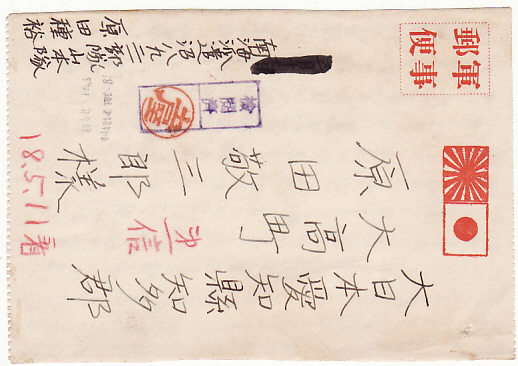 軍事
郵便
大日本愛知縣知多郡
大高町
原田敬三郎様
第一信
18.5.11着
検閲済
南海派遣
部隊山本隊
原田種裕